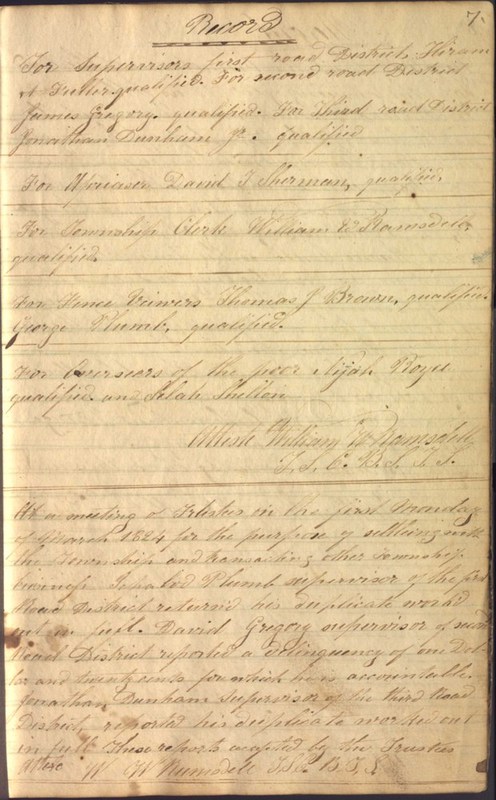 Record
7.
For Supervisors first road District, Hiram
Fuller, qualified. For second road District
James Gregory, qualified. For third road District
Jonathan Dunham Jr. qualified
For David J Sherman, qualified,
For Township Clerk William W Ramsdell,
qualified.
For Fence Veiwers Thomas J Brown, qualified.
George Plumb, qualified.
For Overseers of the poor Elijah Royce
qualified. and Selah Shelton
Atteste William W Ramsdell
At a meeting of Trustees in the first Monday
of March 1824 for the purpose of settleing with
the Township and transacting other township
Plumb supervisor of the first
Road District returnd his duplicate workd
out in full. David Gregory supervisor of
Road District reported a delinquency of one Dol-
lar and twenty cents for which he is accountable.
Jonathan Dunham supervisor of the third Road
District, reported his duplicate worked out
in full these reports accepted by the Trustees
W W Ramsdell